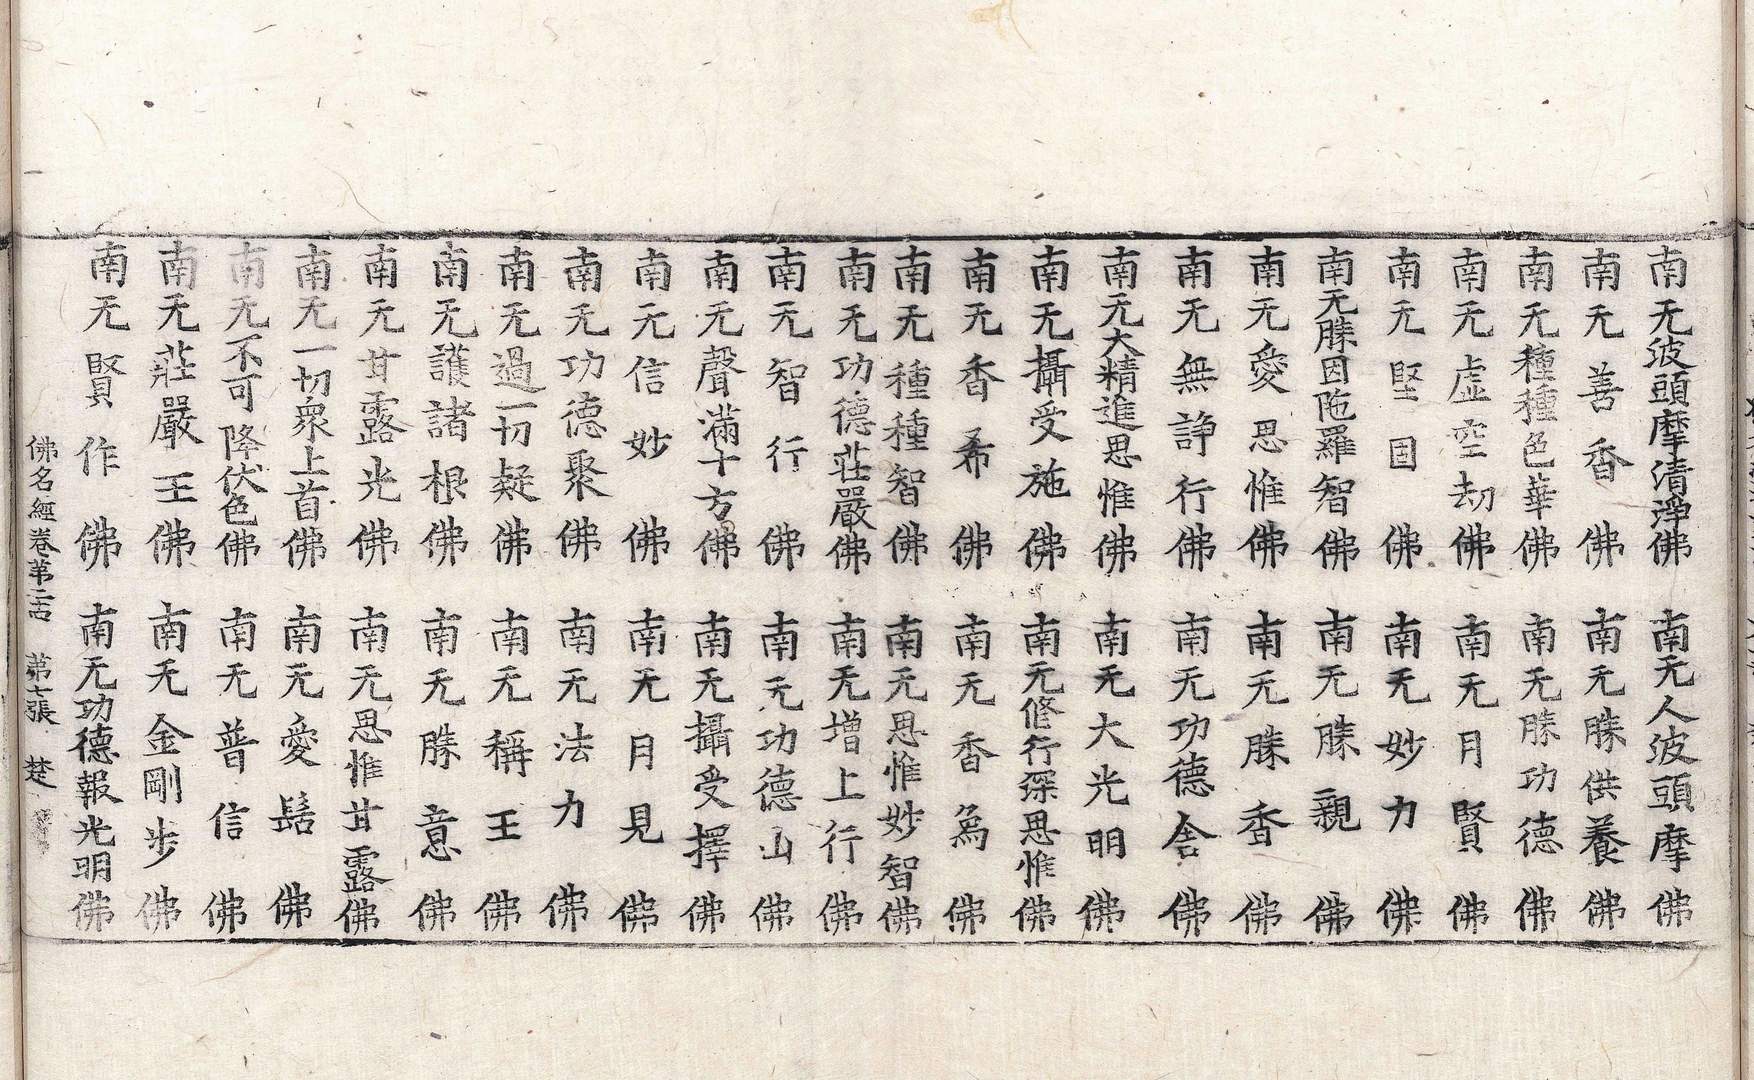 南无波頭摩清淨佛 南无人波頭摩佛
南无善香佛 南无勝供養佛
南无種種色華佛 南无勝功德佛
南无虛空劫佛 南无月賢佛
南无堅固佛 南无妙力佛
南无勝因陁羅智佛 南无勝親佛
南无愛思惟佛 南无勝香佛
南无無諍行佛 南无功德舍佛
南无大精進思惟佛 南无大光明佛
南无攝受施佛 南无修行深思惟佛
南无香希佛 南无香象佛
南无種種智佛 南无思惟妙智佛
南无功德莊嚴佛 南无增上行佛
南无智行佛 南无功德山佛
南无聲滿十方佛 南无攝受擇佛
南无信妙佛 南无月見佛
南无功德聚佛 南无法力佛
南无過一切疑佛 南无稱王佛
南无護諸根佛 南无勝意佛
南无甘露光佛 南无思惟甘露佛
南无一切衆上首佛 南无愛髻佛
南无不可降伏色佛 南无普信佛
南无莊嚴王佛 南无金剛步佛
南无賢作佛 南无功德報光明佛
佛名經卷第二 第七張 楚